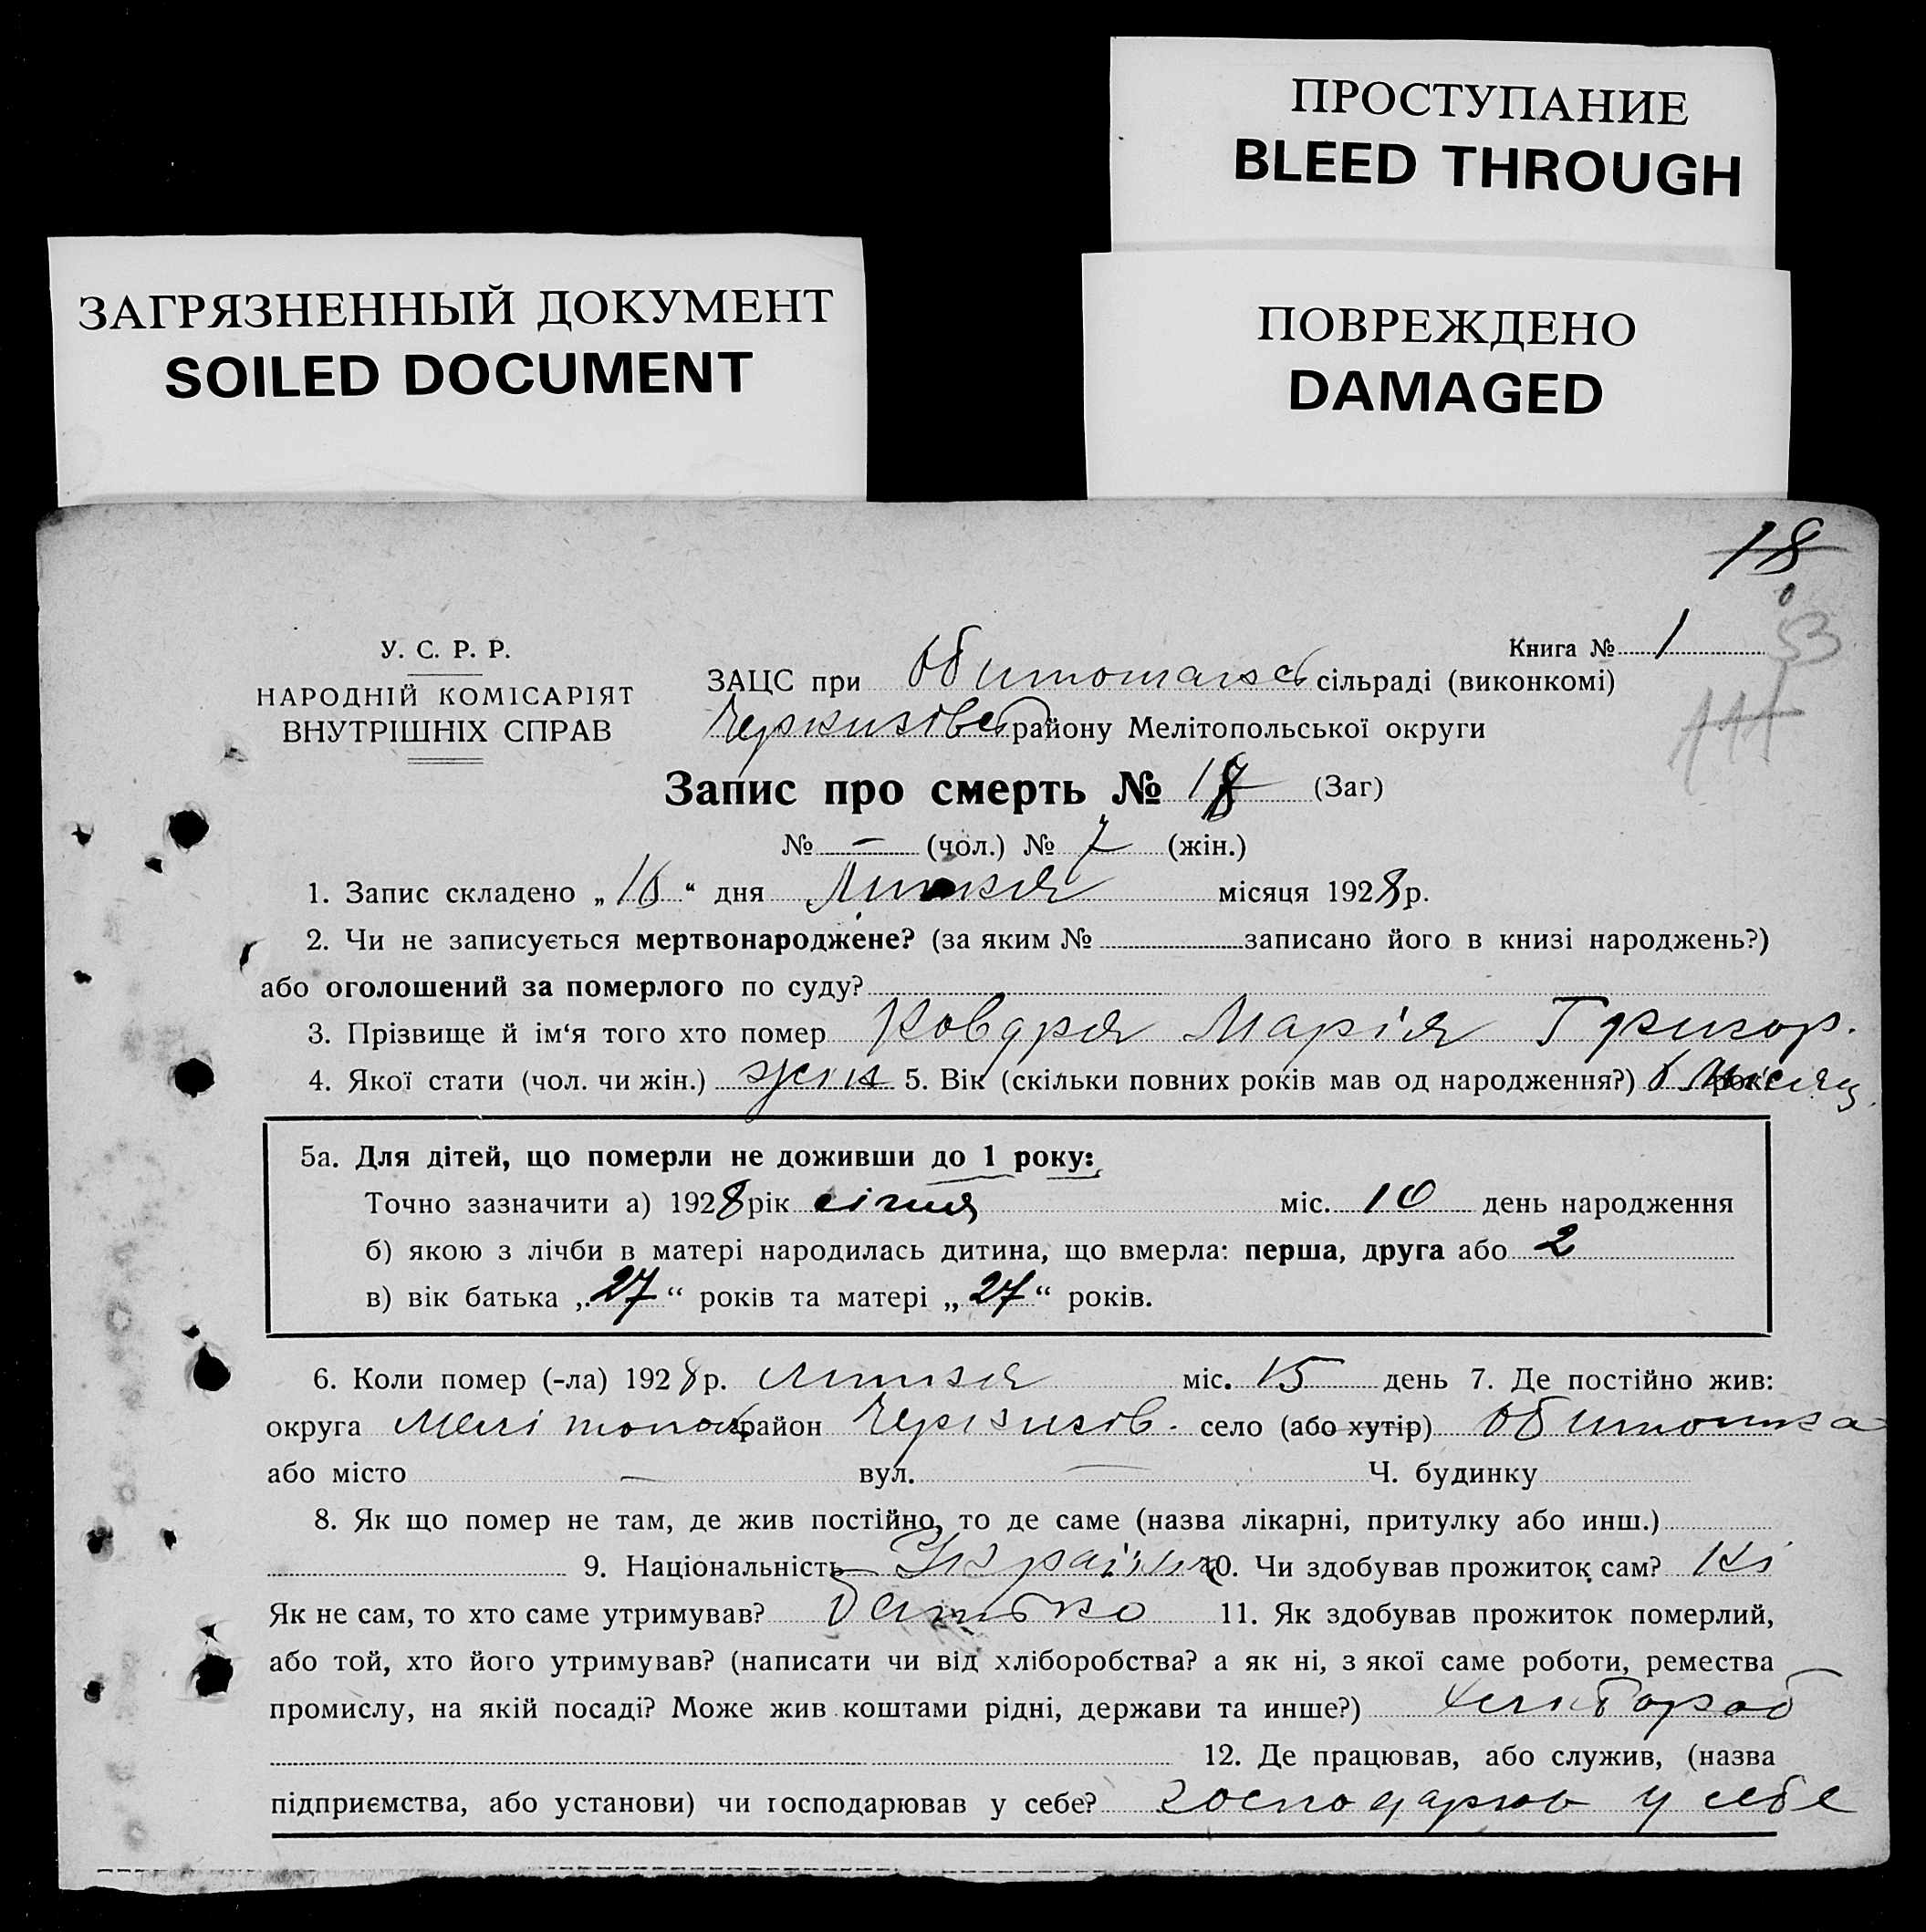 ПРОСТУПАНИЕ
BLEED THROUGH
ЗАГРЯЗНЕННЫЙ ДОКУМЕНТ
SOILED DOCUMENT
ПОВРЕЖДЕНО
DAMAGED
18
53
У. С. Р. Р.
НАРОДНІЙ КОМІСАРІЯТ
ВНУТРІШНІХ СПРАВ
Книга № 1
ЗАЦС при Обиточанск сільраді (виконкомі)
Черкизівс району Мелітопольської округи
Запис про смерть № 18 (Заг)
№ — (чол.) № 7 (жін.)
1. Запис складено „16“ дня Лютня місяця 1928 р.
2. Чи не записується мертвонароджене? (за яким № записано його в книзі народжень?)
або оголошений за померлого по суду?
3. Прізвище й ім‘я того хто помер Ковдря Марія Григор.
4. Якої стати (чол. чи жін.) жін 5. Вік (скільки повних років мав од народження?) місяц
5а. Для дітей, що померли не доживши до 1 року:
Точно зазначити а) 1928 рік січня міс. 10 день народження
б) якою з лічби в матері народилась дитина, що вмерла: перша, друга або 2
в) вік батька „27“ років та матері „27“ років.
6. Коли помер (-ла) 1928 р. лютня міс. 15 день 7. Де постійно жив:
округа Мелітопол район Черкизів. село (або хутір) Обиточна
або місто — вул. — Ч. будинку
8. Як що помер не там, де жив постійно, то де саме (назва лікарні, притулку або инш.)
9. Національність Україн 10. Чи здобував прожиток сам? Ні
Як не сам, то хто саме утримував? батько 11. Як здобував прожиток померлий,
або той, хто його утримував? (написати чи від хліборобства? а як ні, з якої саме роботи, ремества
промислу, на якій посаді? Може жив коштами рідні, держави та инше?) хлібороб
12. Де працював, або служив, (назва
підприємства, або установи) чи господарював у себе? господарюв у себе